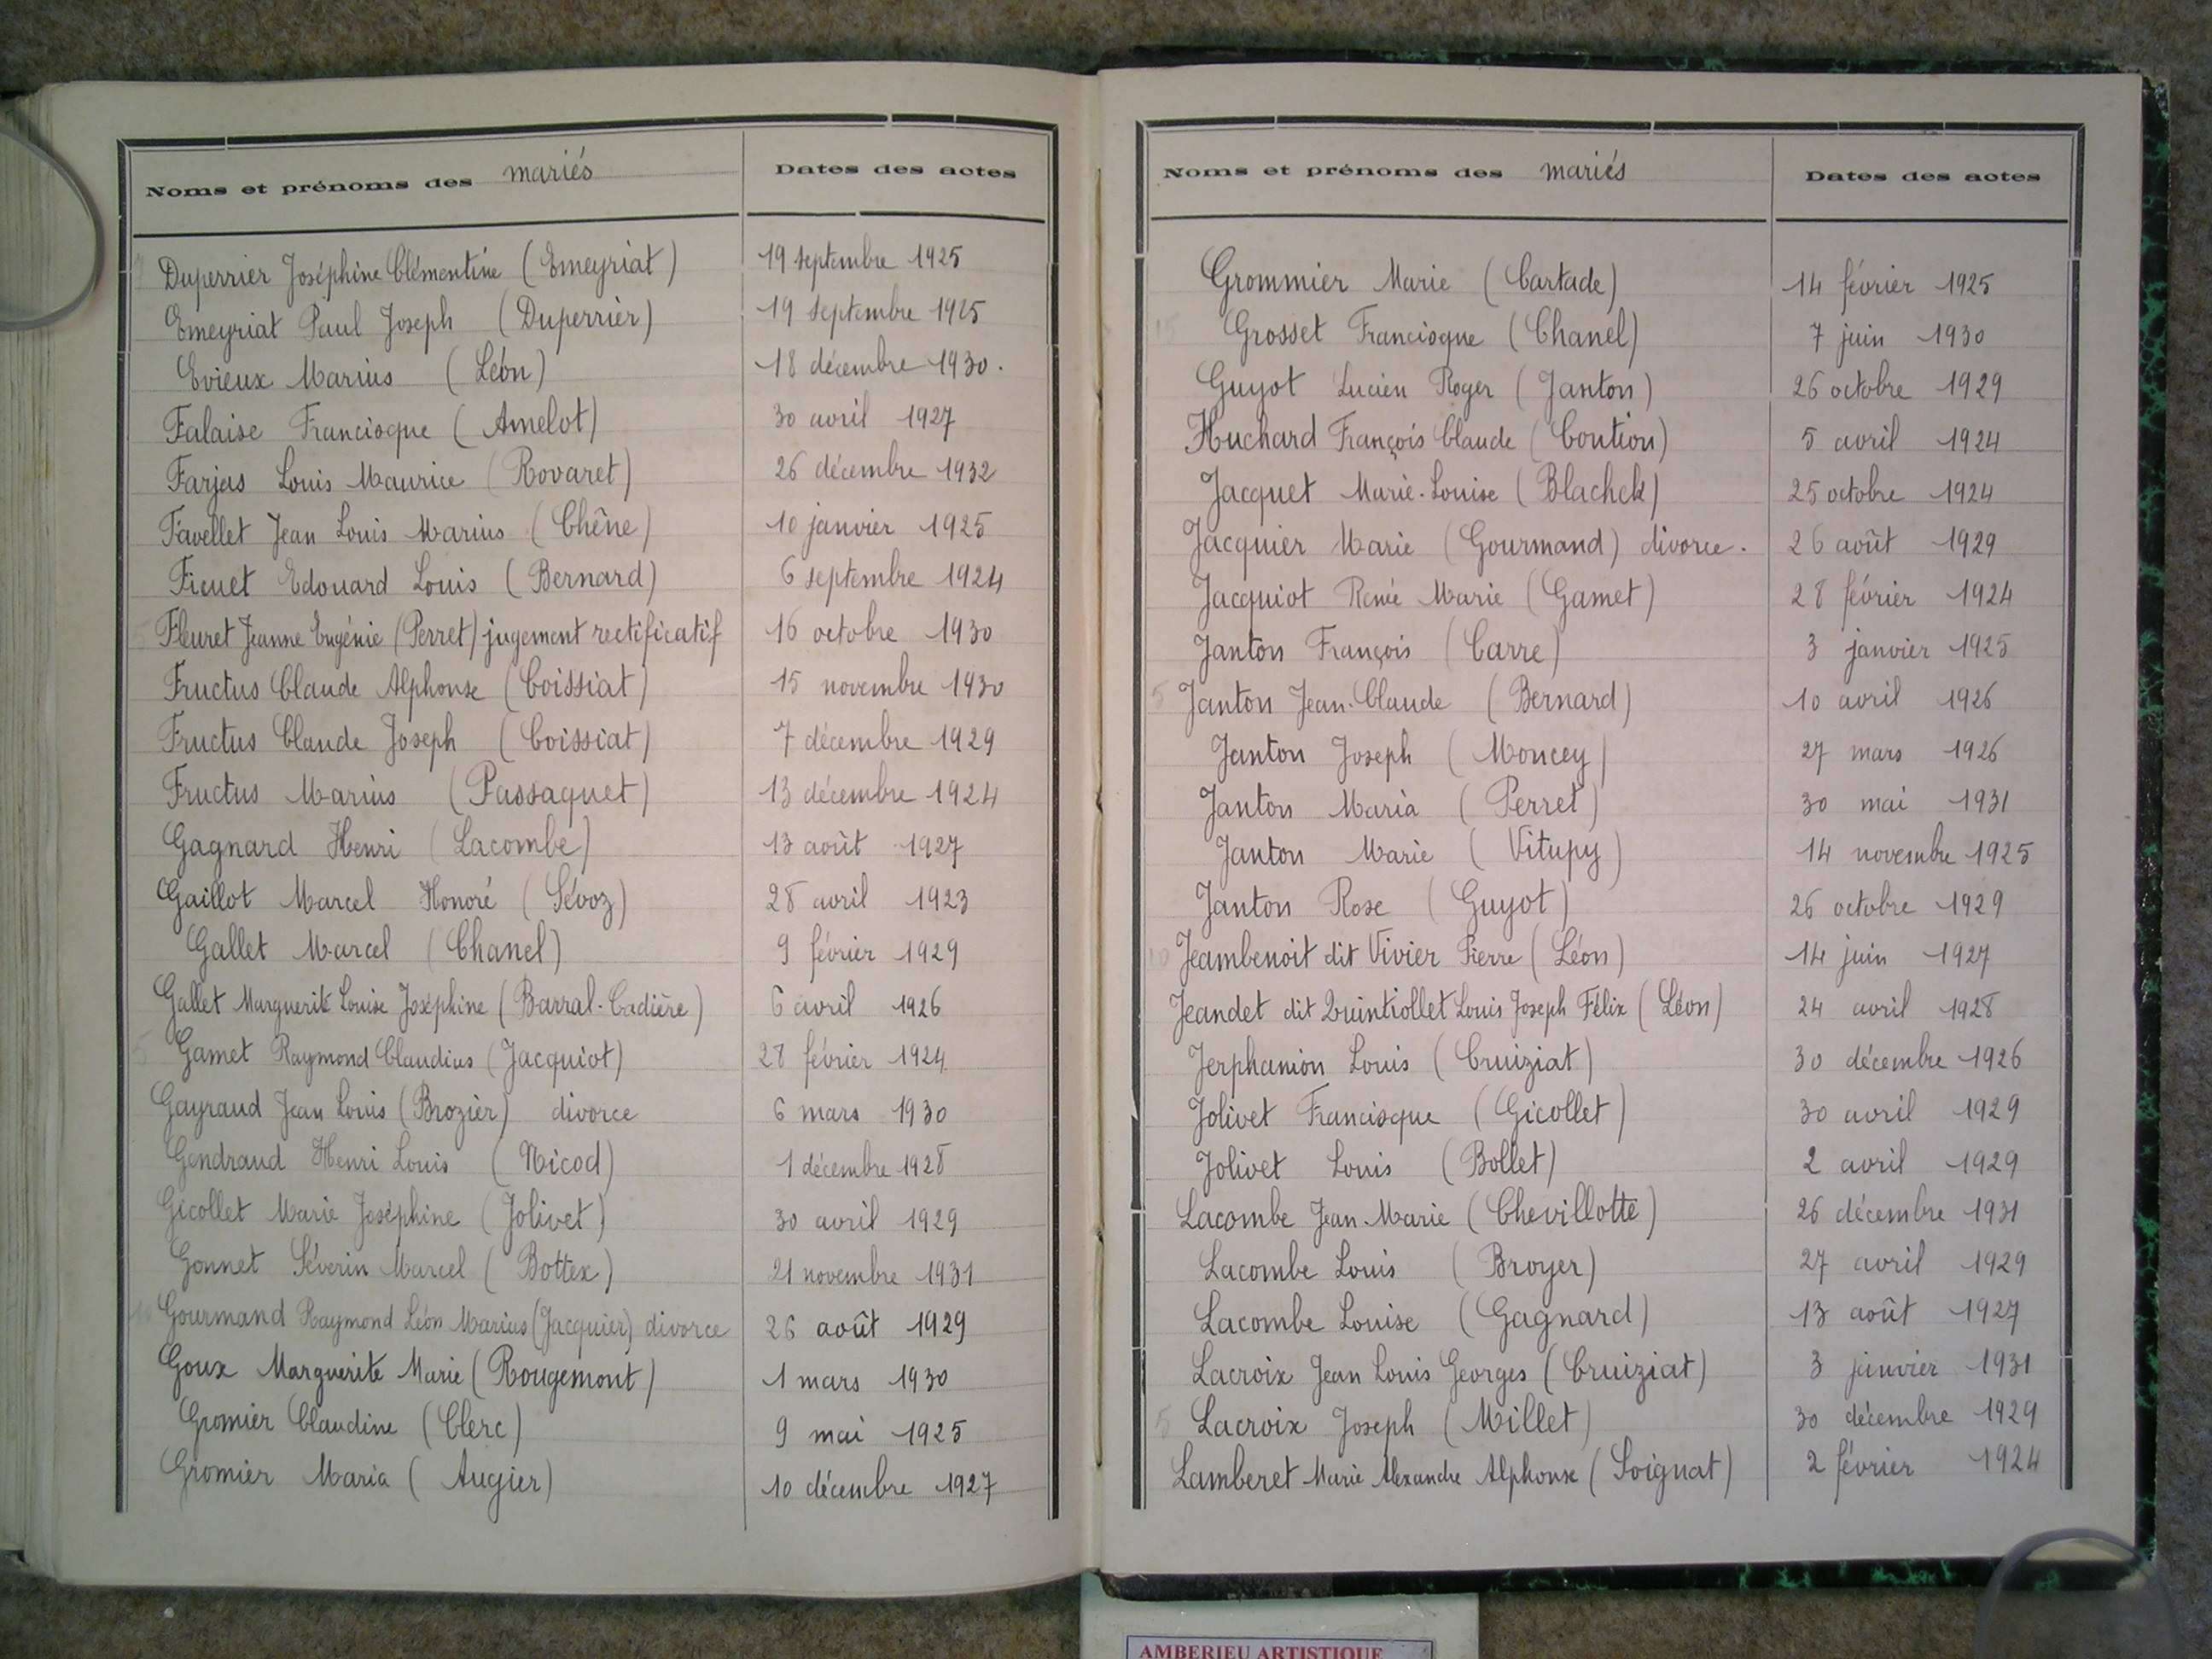 Noms et prénoms des mariés Dates des actes
Duperrier Joséphine Clémentine (Emeyriat) 19 septembre 1925
Emeyriat Paul Joseph (Duperrier) 19 septembre 1925
Evieux Marius (Léon) 18 décembre 1930.
Falaise Francisque (Amelot) 30 avril 1927
Farjas Louis Maurice (Rovaret) 26 décembre 1932
Favellet Jean Louis Marius (Chêne) 10 janvier 1925
Ficuet Edouard Louis (Bernard) 6 septembre 1924
Fleuret Jeanne Eugénie (Perret) jugement rectificatif 16 octobre 1930
Fructus Claude Alphonse (Coissiat) 15 novembre 1930
Fructus Claude Joseph (Coissiat) 7 décembre 1929
Fructus Marius (Passaquet) 13 décembre 1924
Gagnard Henri (Lacombe) 13 août 1927
Gaillot Marcel Honoré (Sévoz) 28 avril 1923
Gallet Marcel (Chanel) 9 février 1929
Gallet Marguerite Louise Joséphine (Barral-Cadière) 6 avril 1926
Gamet Raymond Claudius (Jacquiot) 28 février 1924
Gayraud Jean Louis (Brozier) divorce 6 mars 1930
Gendraud Henri Louis (Nicod) 1 décembre 1928
Gicollet Marie Joséphine (Jolivet) 30 avril 1929
Gonnet Séverin Marcel (Bottex) 21 novembre 1931
Gourmand Raymond Léon Marius (Jacquier) divorce 26 août 1929
Goux Marguerite Marie (Rougemont) 1 mars 1930
Gromier Claudine (Clerc) 9 mai 1925
Gromier Maria (Augier) 10 décembre 1927
Noms et prénoms des mariés Dates des actes
Grommier Marie (Cartade) 14 février 1925
15 Grosset Francisque (Chanel) 7 juin 1930
Guyot Lucien Roger (Janton) 26 octobre 1929
Huchard François Claude (Coution) 5 avril 1924
Jacquet Marie-Louise (Blachek) 25 octobre 1924
Jacquier Marie (Gourmand) divorce. 26 août 1929
Jacquiot Renée Marie (Gamet) 28 février 1924
Janton François (Carre) 3 janvier 1925
5 Janton Jean-Claude (Bernard) 10 avril 1926
Janton Joseph (Moncey) 27 mars 1926
Janton Maria (Perret) 30 mai 1931
Janton Marie (Vitupy) 14 novembre 1925
Janton Rose (Guyot) 26 octobre 1929
10 Jeambenoit dit Vivier Pierre (Léon) 14 juin 1927
Jeandet dit Quintiollet Louis Joseph Félix (Léon) 24 avril 1928
Jerphanion Louis (Cruiziat) 30 décembre 1926
Jolivet Francisque (Gicollet) 30 avril 1929
Jolivet Louis (Bollet) 2 avril 1929
Lacombe Jean-Marie (Chevillotte) 26 décembre 1931
Lacombe Louis (Broyer) 27 avril 1929
Lacombe Louise (Gagnard) 13 août 1927
Lacroix Jean Louis Georges (Cruiziat) 3 janvier 1931
5 Lacroix Joseph (Millet) 30 décembre 1929
Lamberet Marie Alexandre Alphonse (Soignat) 2 février 1924
AMBERIEU ARTISTIQUE